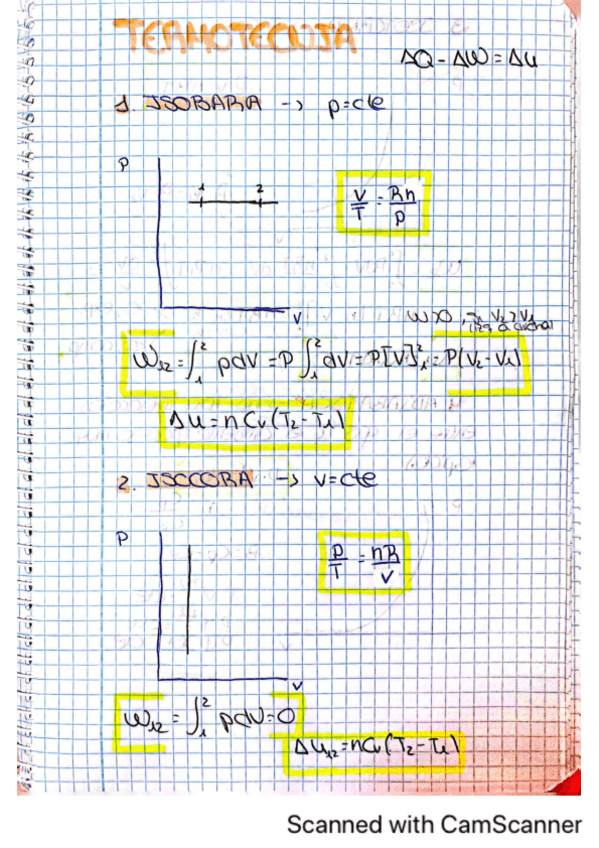 TERMOTECNIA
ΔQ - ΔW = Δu
1. ISOBARA → p=cte
P
1 2
V/T = Rn/P
V
W>0, si V₂>V₁
W₁₂ = ∫₁² pdV = P ∫₁² dV = P[V]₁² = P(V₂-V₁)
Δu = n Cv (T₂-T₁)
2. ISOCORA → v=cte
P
P/T = nR/V
V
W₁₂ = ∫₁² pdV = 0
Δu₁₂ = nCv(T₂-T₁)
Scanned with CamScanner